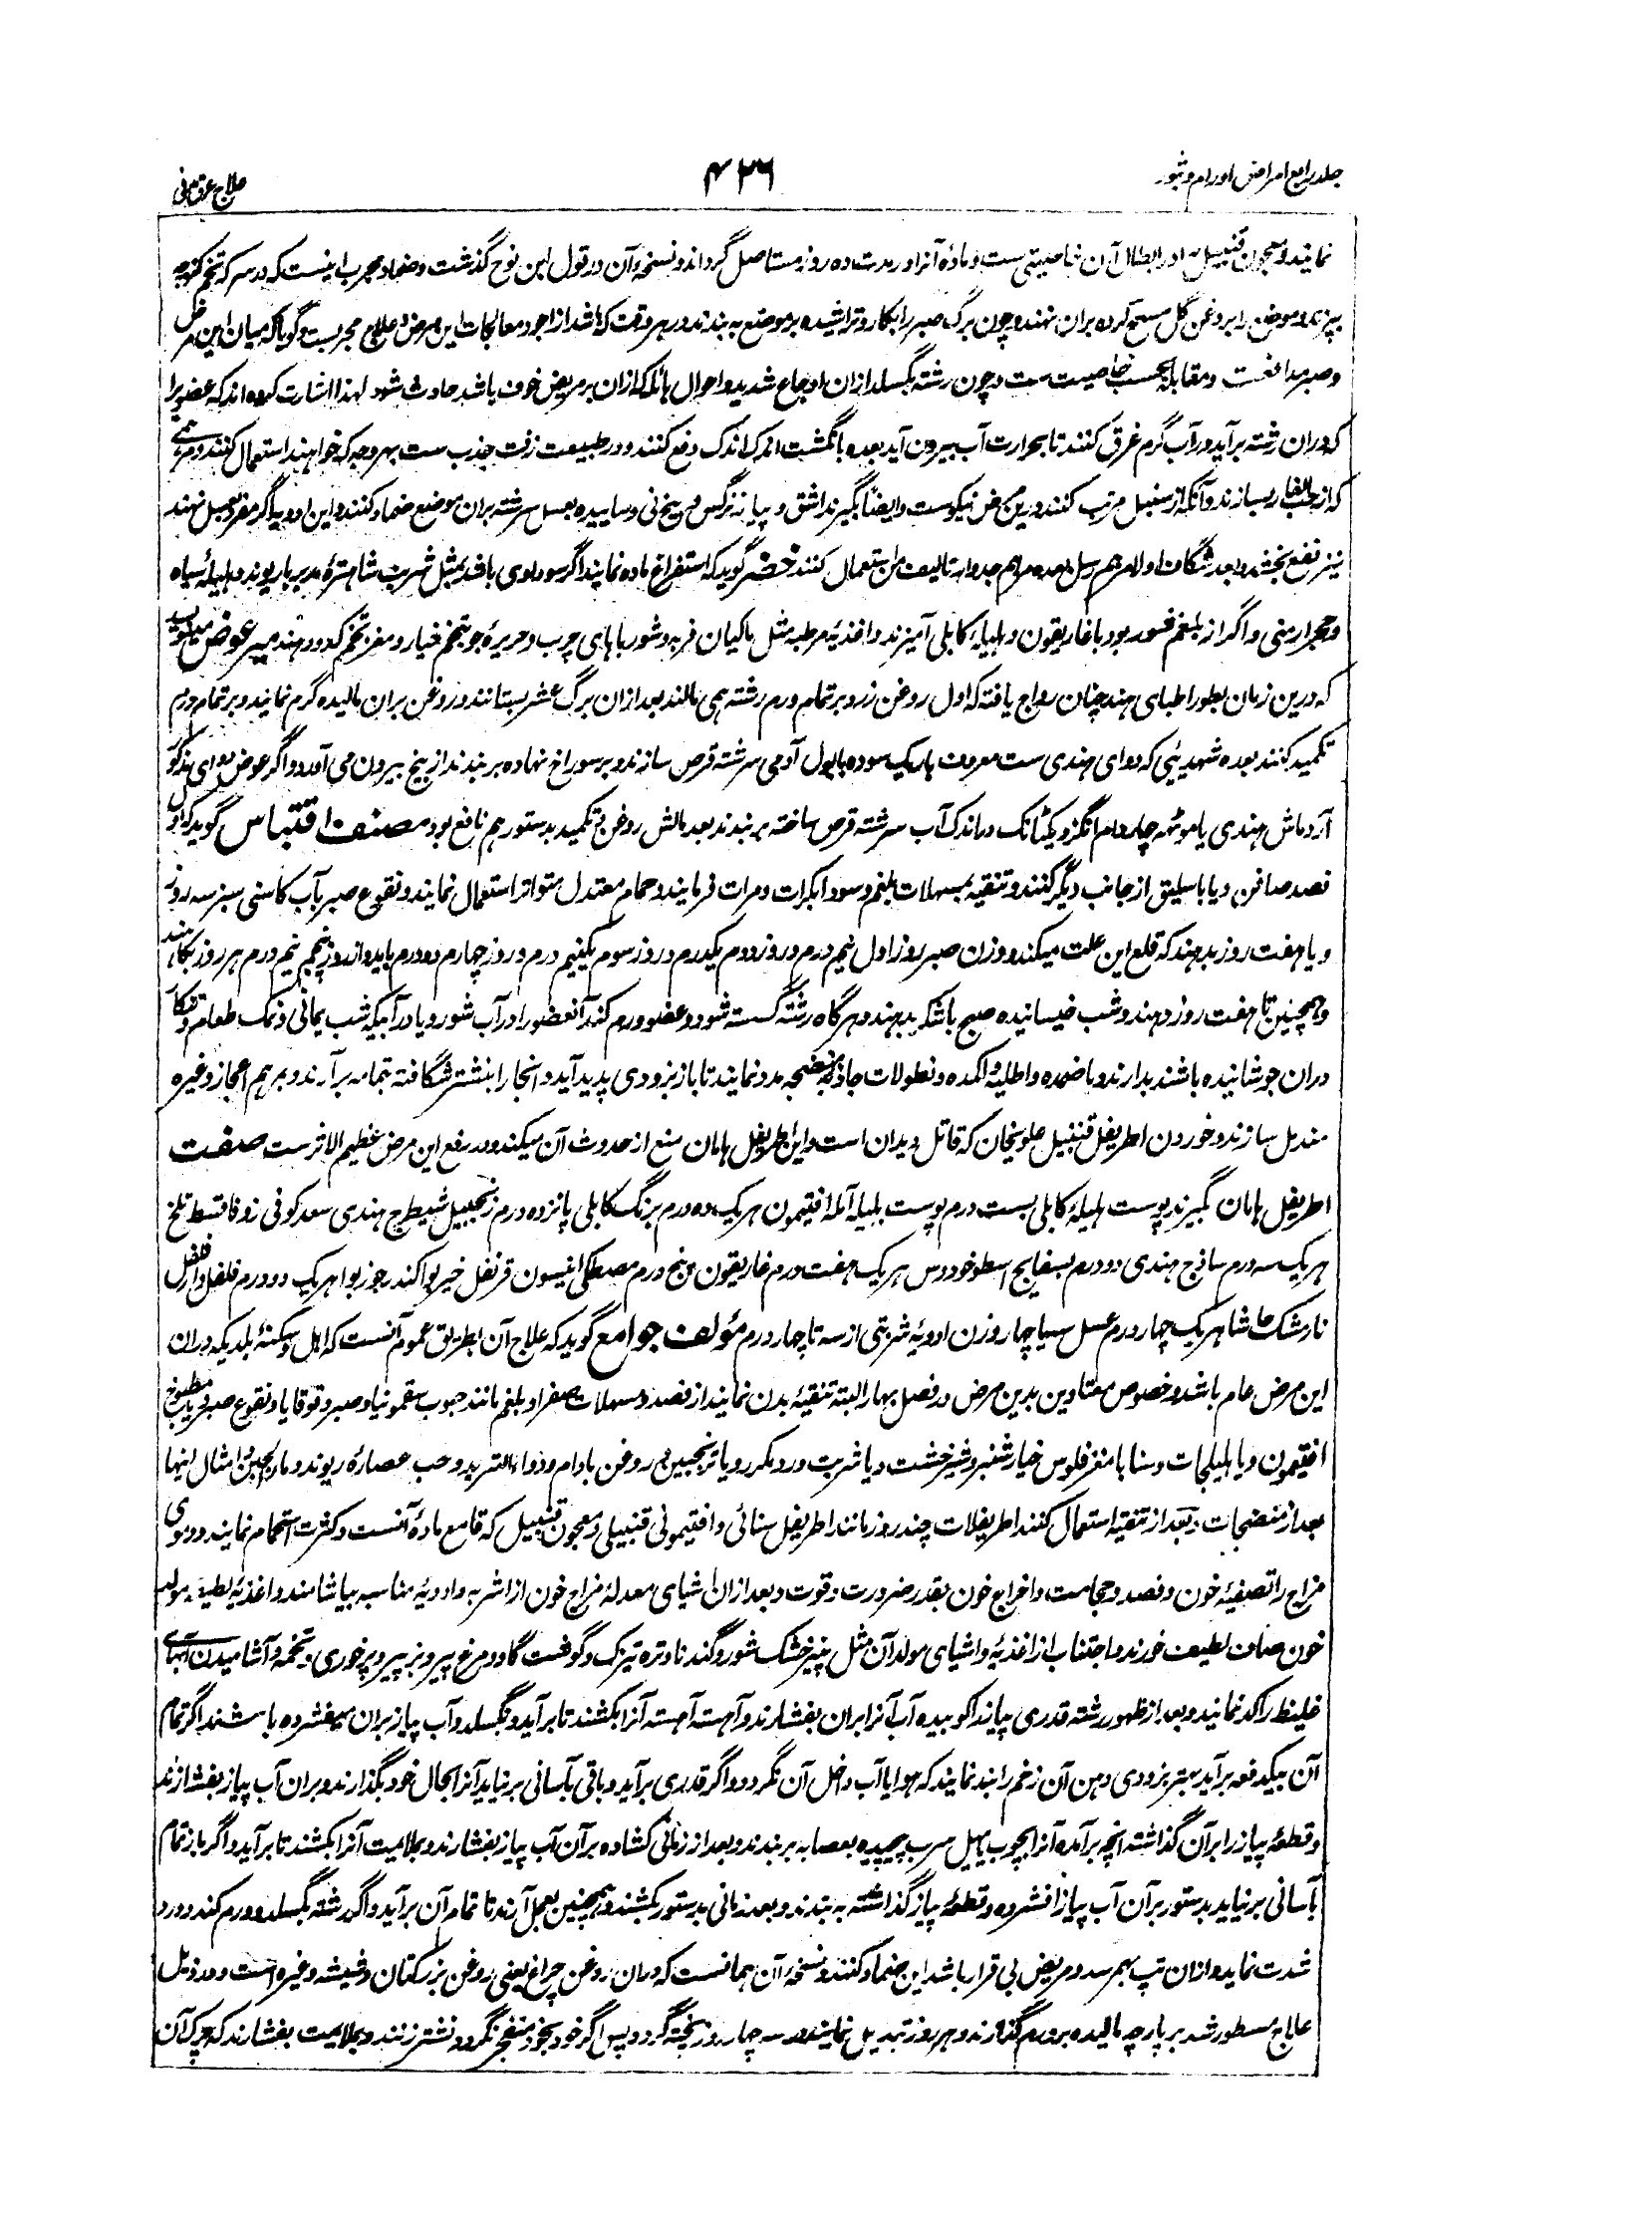 جلد رابع امراض اورام و بثور
۴۳۶
علاج عرق مدنی
نمایند و معجون قنبیل را در ابطال آن خاصیتی ست و مادۀ آنرا در مدت ده روز مستاصل گرداند و نسخۀ آن در قول ابن نوح گذشت و ضماد مجرب اینست که در سرکه تخم
بپزند و موضع را بروغن گل مسح کرده بران نهند و چون برگ صبر را بکارد تراشیده بر موضع به بندند در هر وقت که باشد از اجود معالجات این مرض و علاج مجرب ست و گویا که میان این مرض
و صبر مدافعت و مقابله بحسب خاصیت ست و چون رشته بگسلد ازان اوجاع شدید و احوال هائله که ازان بر مریض خوف باشد حادث شود لهذا اشارت کرده اند که عضو را
که دران رشته برآید در آب گرم غرق کنند تا بحرارت آب بیرون آید بعده بانگشت اندک اندک دفع کنند و در طبیعت زفت جذب ست بهر وجه که خواهند استعمال کنند و مرهمی
که از حب الغار بسازند و آنکه از سنبل مرتب کنند درین مرض نیکوست و ایضاً بگیرند اشق و پیاز نرگس و سائیده بعسل سرشته بران موضع ضماد کنند و این ادویه اگر مفرد بعسل نهند
نیز نفع بخشد و بعد شگافت اولا مرهم رسل بعده مراهم جدوار تالیف من استعمال کنند خضر گوید که استفراغ ماده نمایند اگر سوداوی باشد بمثل شربت شاهتره مدبر بریوند و هلیلۀ سیاه
و حجر ارمنی و اگر از بلغم بود با غاریقون و هلیلۀ کابلی آمیزند و اغذیه مرطبه مثل ماکیان فربه و شورباهای چرب و حریرۀ جو بتخم خیار و مغز تخم کدو دهند میر عوض مینویسد
که درین زمان بطور اطبای هند چنان رواج یافته که اول روغن زرد بر تمام ورم رشته همی مالند بعد ازان برگ عشر بستانند و روغن بران مالیده گرم نمایند و بر تمام ورم
تکمید کنند بعده که دوای هندی ست معروف باریک سوده با بول آدمی سرشته قرص سازند و بر سوراخ نهاده بر بندند از بیخ بیرون می آورد و اگر عوض دوای مذکور
آرد ماش هندی یا موٹھہ چهار دام انگزه یکٹانک در اندک آب سرشته قرص ساخته بر بندند بعد مالش روغن و تکمید بدستور هم نافع بود مصنف اقتباس گوید که اول
فصد صافن و یا باسلیق از جانب دیگر کنند و تنقیه بمسهلات بلغم و سودا بکرات و مرات فرمایند و حمام معتدل متواتر استعمال نمایند و نقوع صبر بآب کاسنی سبز سه روز
و یا هفت روز بدهند که قلع این علت میکند و وزن صبر روز اول نیم درم و روز دوم یکدرم و روز سوم یکنیم درم و روز چهارم دو درم باید و از روز پنجم نیم درم هر روز بکاهند
و همچنین تا هفت روز دهند و شب خیسانیده صبح با شکر بدهند و هرگاه رشته گسسته شود و عضو ورم کند آنعضو را در آب شور و یا در آبیکه شب یمانی و نمک طعام و
دران جوشانیده باشند بدارند و باضمده و اطلیه و اکمده و نطولات جاذبه منضجه مدد نمایند تا باز بزودی پدید آید و آنجا را بنشتر شگافته بتمامه برآرند و بمرهم اعجاز و غیره
مندمل سازند و خوردن اطریفل قنبیل علویخان که قاتل دیدان است و این اطریفل هامان منع از حدوث آن میکند و در رفع این مرض عظیم الاثر ست صفت
اطریفل هامان بگیرند پوست هلیلۀ کابلی بست درم پوست بلیله آمله افتیمون هر یک ده درم برنگ کابلی پانزده درم زنجبیل شیطرج هندی سعد کوفی زوفا قسط تلخ
هر یک سه درم ساذج هندی دو درم بسفایج اسطوخودوس هر یک هفت درم غاریقون پنج درم مصطکی انیسون قرنفل خیر بوا کندر جوز بوا هر یک دو درم فلفل دارفلفل
نارمشک حاشا هر یک چهار درم عسل سیا چهار وزن ادویه شربتی از سه تا چهار درم مؤلف جوامع گوید که علاج آن بطریق عموم آنست که اهل و سکنۀ بلدیکه دران
این مرض عام باشد و خصوص معتادین بدین مرض در فصل بهار البته تنقیۀ بدن نمایند از فصد و مسهلات صفرا و بلغم مانند حبوب سقمونیا و صبر و قوقایا و نقوع صبر و مطبوخ
افتیمون و یا هلیلجات و سنا با مغز فلوس خیارشنبر و شیرخشت و یا شربت ورد مکرر و یا ترنجبین و روغن بادام و دواء التربد و حب عصارۀ ریوند و ماء الجبن و امثال اینها
بعد از منضجات و بعد از تنقیه استعمال کنند اطریفلات چند روز مانند اطریفل سنائی و افتیمونی و قنبیلی و معجون قنبیل که قامع مادۀ آنست و کثرت استحمام نمایند و دموی
مزاج را تصفیۀ خون و فصد و حجامت و اخراج خون بقدر ضرورت و قوت و بعد ازان اشیای معدلۀ مزاج خون از اشربه و ادویۀ مناسبه بیاشامند و اغذیۀ لطیفه مولد
خون صاف لطیف خورند و اجتناب از اغذیه و اشیای مولد آن مثل پنیر خشک شور و گندنا و تره تیزک و گوشت گاو و مرغ پیر و بز پیر و پرخوری و تخمه و آشامیدن آبهای
غلیظ راکد نمایند و بعد از ظهور رشته قدری پیاز را کوبیده آب آنرا بران بفشارند و آهسته آهسته آنرا بکشند تا برآید و نگسلد و آب پیاز بران میفشرده باشند اگر تمام
آن بیکدفعه برآید بهتر بزودی دهن آن زخم را بند نمایند که هوا یا آب داخل آن نگردد و اگر قدری برآید و باقی بآسانی برنیاید آنرا بحال خود بگذارند و بران آب پیاز بفشارند
و قطعۀ پیاز را برآن گذاشته آنچه برآمده آنرا بچوب یا میل سرب پیچیده بعصابه بر بندند و بعد از زمانی کشاده برآن آب پیاز بفشارند و بملایمت آنرا بکشند تا برآید و اگر باز تمام
بآسانی برنیاید بدستور برآن آب پیاز افشرده و قطعۀ پیاز گذاشته به بندند و بعد زمانی بدستور بکشند و همچنین بعمل آرند تا تمام آن برآید و اگر رشته بگسلد و ورم کند و درد
شدت نماید و ازان تپ بهمرسد و مریض بی قرار باشد این ضماد کنند و نسخۀ آن همانست که دران روغن چراغ یعنی روغن بزر کتان و شیشه و غیره است و در ذیل
علاج مسطور شد بر پارچه مالیده بر ورم گذارند و هر روز تبدیل نمایند در سه چار روز پخته گردد پس اگر خود بخود منفجر نگردد نشتر زنند و بملایمت بفشارند که چرک آن